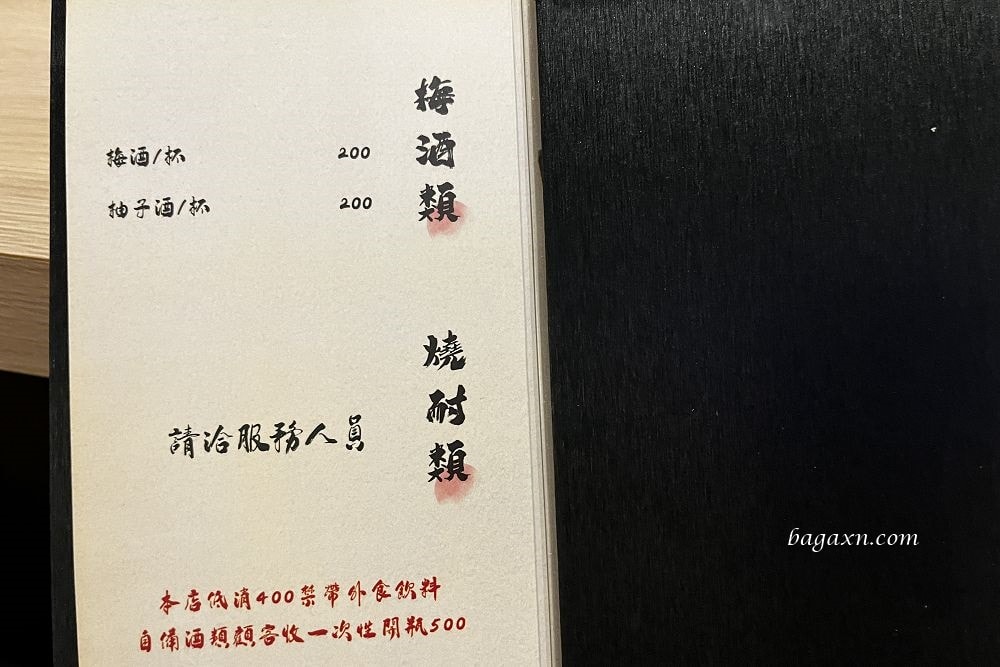 梅酒類
梅酒/杯 200
柚子酒/杯 200
燒耐類
請洽服務人員
本店低消400禁帶外食飲料
自備酒類顧客收一次性開瓶500
bagaxn.com